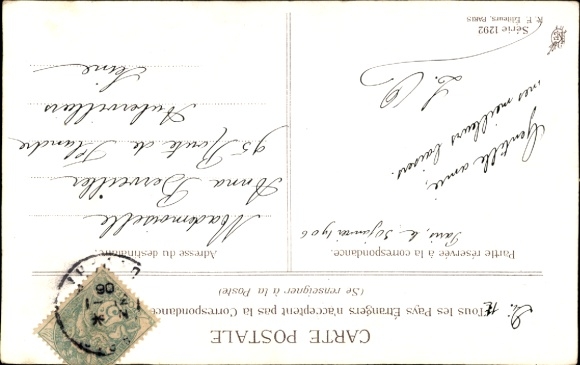 CARTE POSTALE
Tous les Pays Étrangers n'acceptent pas la Correspondance
(Se renseigner à la Poste)
Partie réservée à la correspondance.
Adresse du destinataire.
Paris, le 30 janvier 1906
Gentille amie,
mes meilleurs baisers.
Mademoiselle
Anna Berveiller
95 Route de Flandre
Aubervilliers
Seine
Série 1292
R. F. Éditeurs, PARIS
06